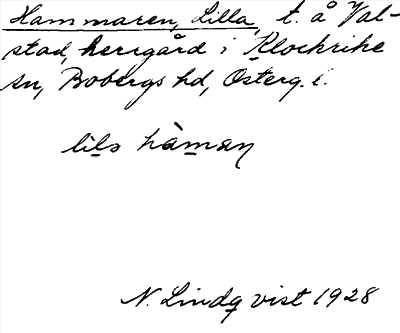 Hammaren, Lilla, t. å Val-
stad, herrgård i Klockrike
sn, Bobergs hd, Österg. l.
lils hàman
N. Lindqvist 1928